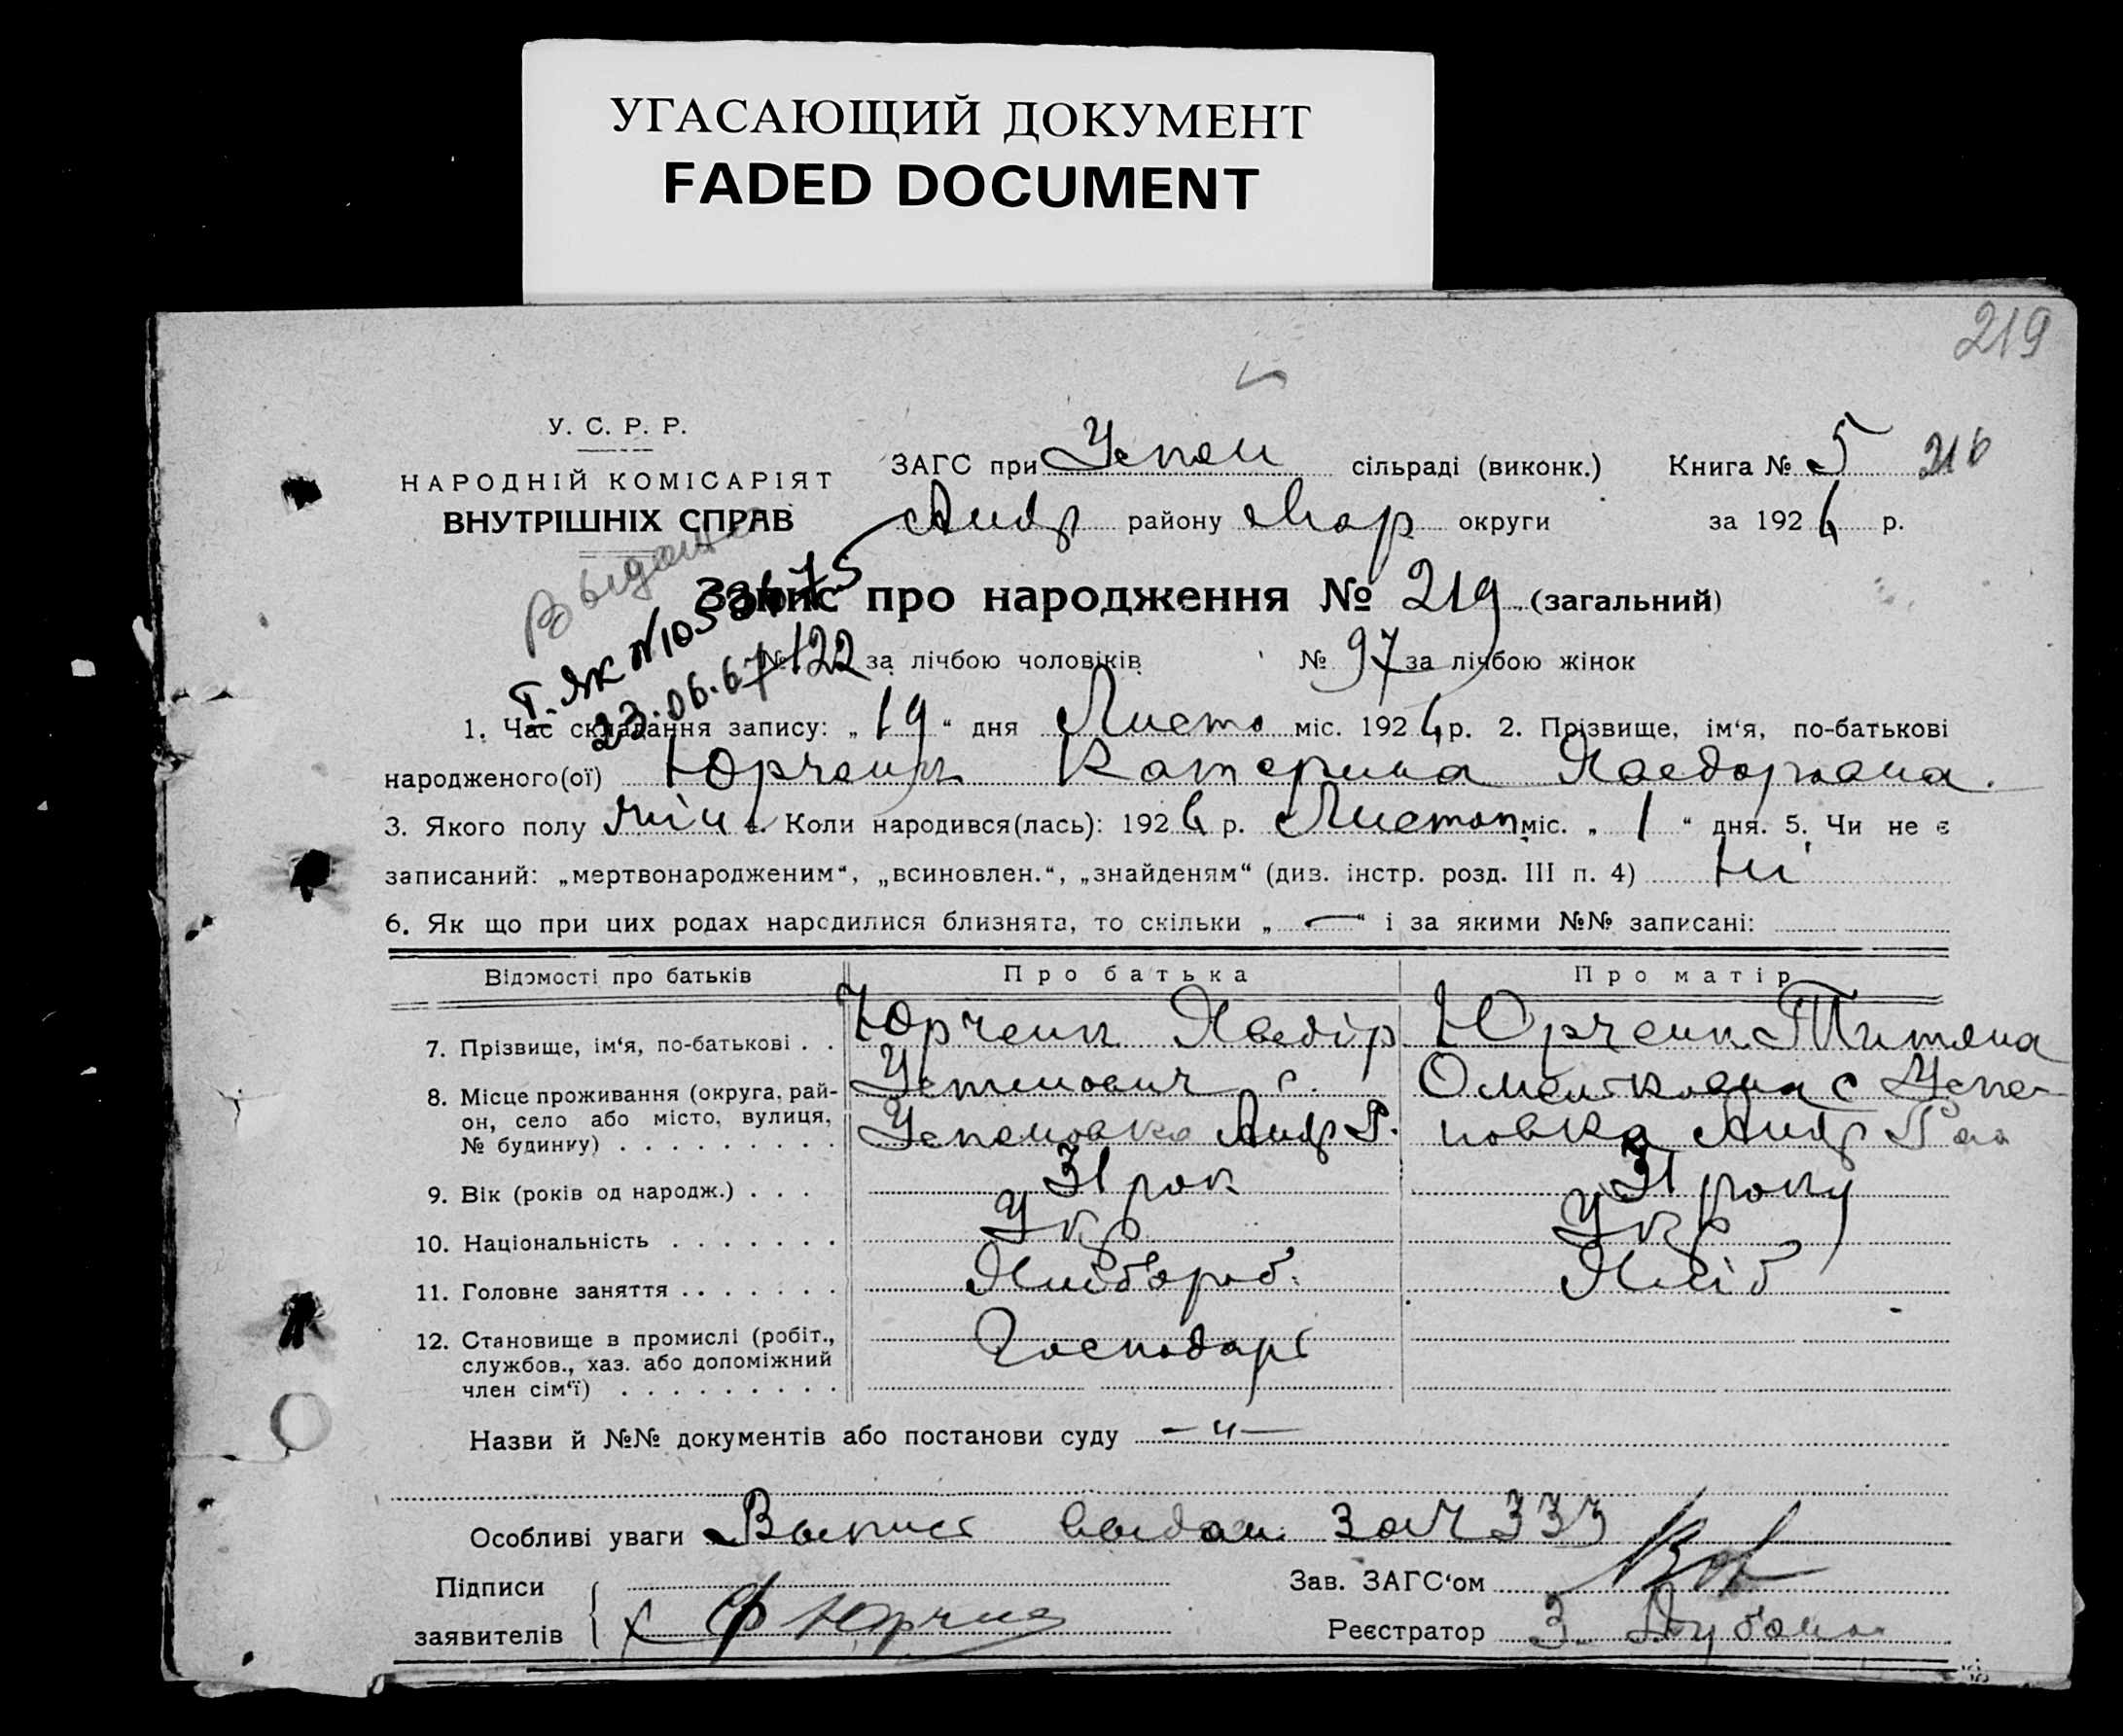 УГАСАЮЩИЙ ДОКУМЕНТ
FADED DOCUMENT
219
У. С. Р. Р.
НАРОДНІЙ КОМІСАРІЯТ
ВНУТРІШНІХ СПРАВ
ЗАГС при Успен сільраді (виконк.) Книга № 5 216
Андр району Мар округи за 1926 р.
Запис про народження № 219 (загальний)
№ 122 за лічбою чоловіків № 97 за лічбою жінок
23.06.67
1. Час складання запису: „19“ дня Листо міс. 1926 р. 2. Прізвище, ім‘я, по-батькові
народженого(ої) Юрченко Катерина Хведорівна.
3. Якого полу жін 4. Коли народився(лась): 1926 р. Листоп міс. „1“ дня. 5. Чи не є
записаний: „мертвонародженим“, „всиновлен.“, „знайденям“ (див. інстр. розд. III п. 4) Ні
6. Як що при цих родах народилися близнята, то скільки „—“ і за якими №№ записані:
Відомості про батьків Про батька Про матір
7. Прізвище, ім‘я, по-батькові . . Юрченк Хведір Юрченк Титяна
8. Місце проживання (округа, рай- Устинович с. Омельковна с Успе-
он, село або місто, вулиця, Успеновка Андр Р. новка Андр
№ будинку) . . . . . . . . .
9. Вік (років од народж.) . . . 31 рок 31 року
10. Національність . . . . . . . Укр Укр
11. Головне заняття . . . . . . . Хлібороб. Хліб
12. Становище в промислі (робіт., Господарь
службов., хаз. або допоміжний
член сім‘ї) . . . . . . . . .
Назви й №№ документів або постанови суду — „ —
Особливі уваги Выпись выдан за № 333
Підписи Зав. ЗАГС‘ом
заявителів х Ф Юрченко Реєстратор З.